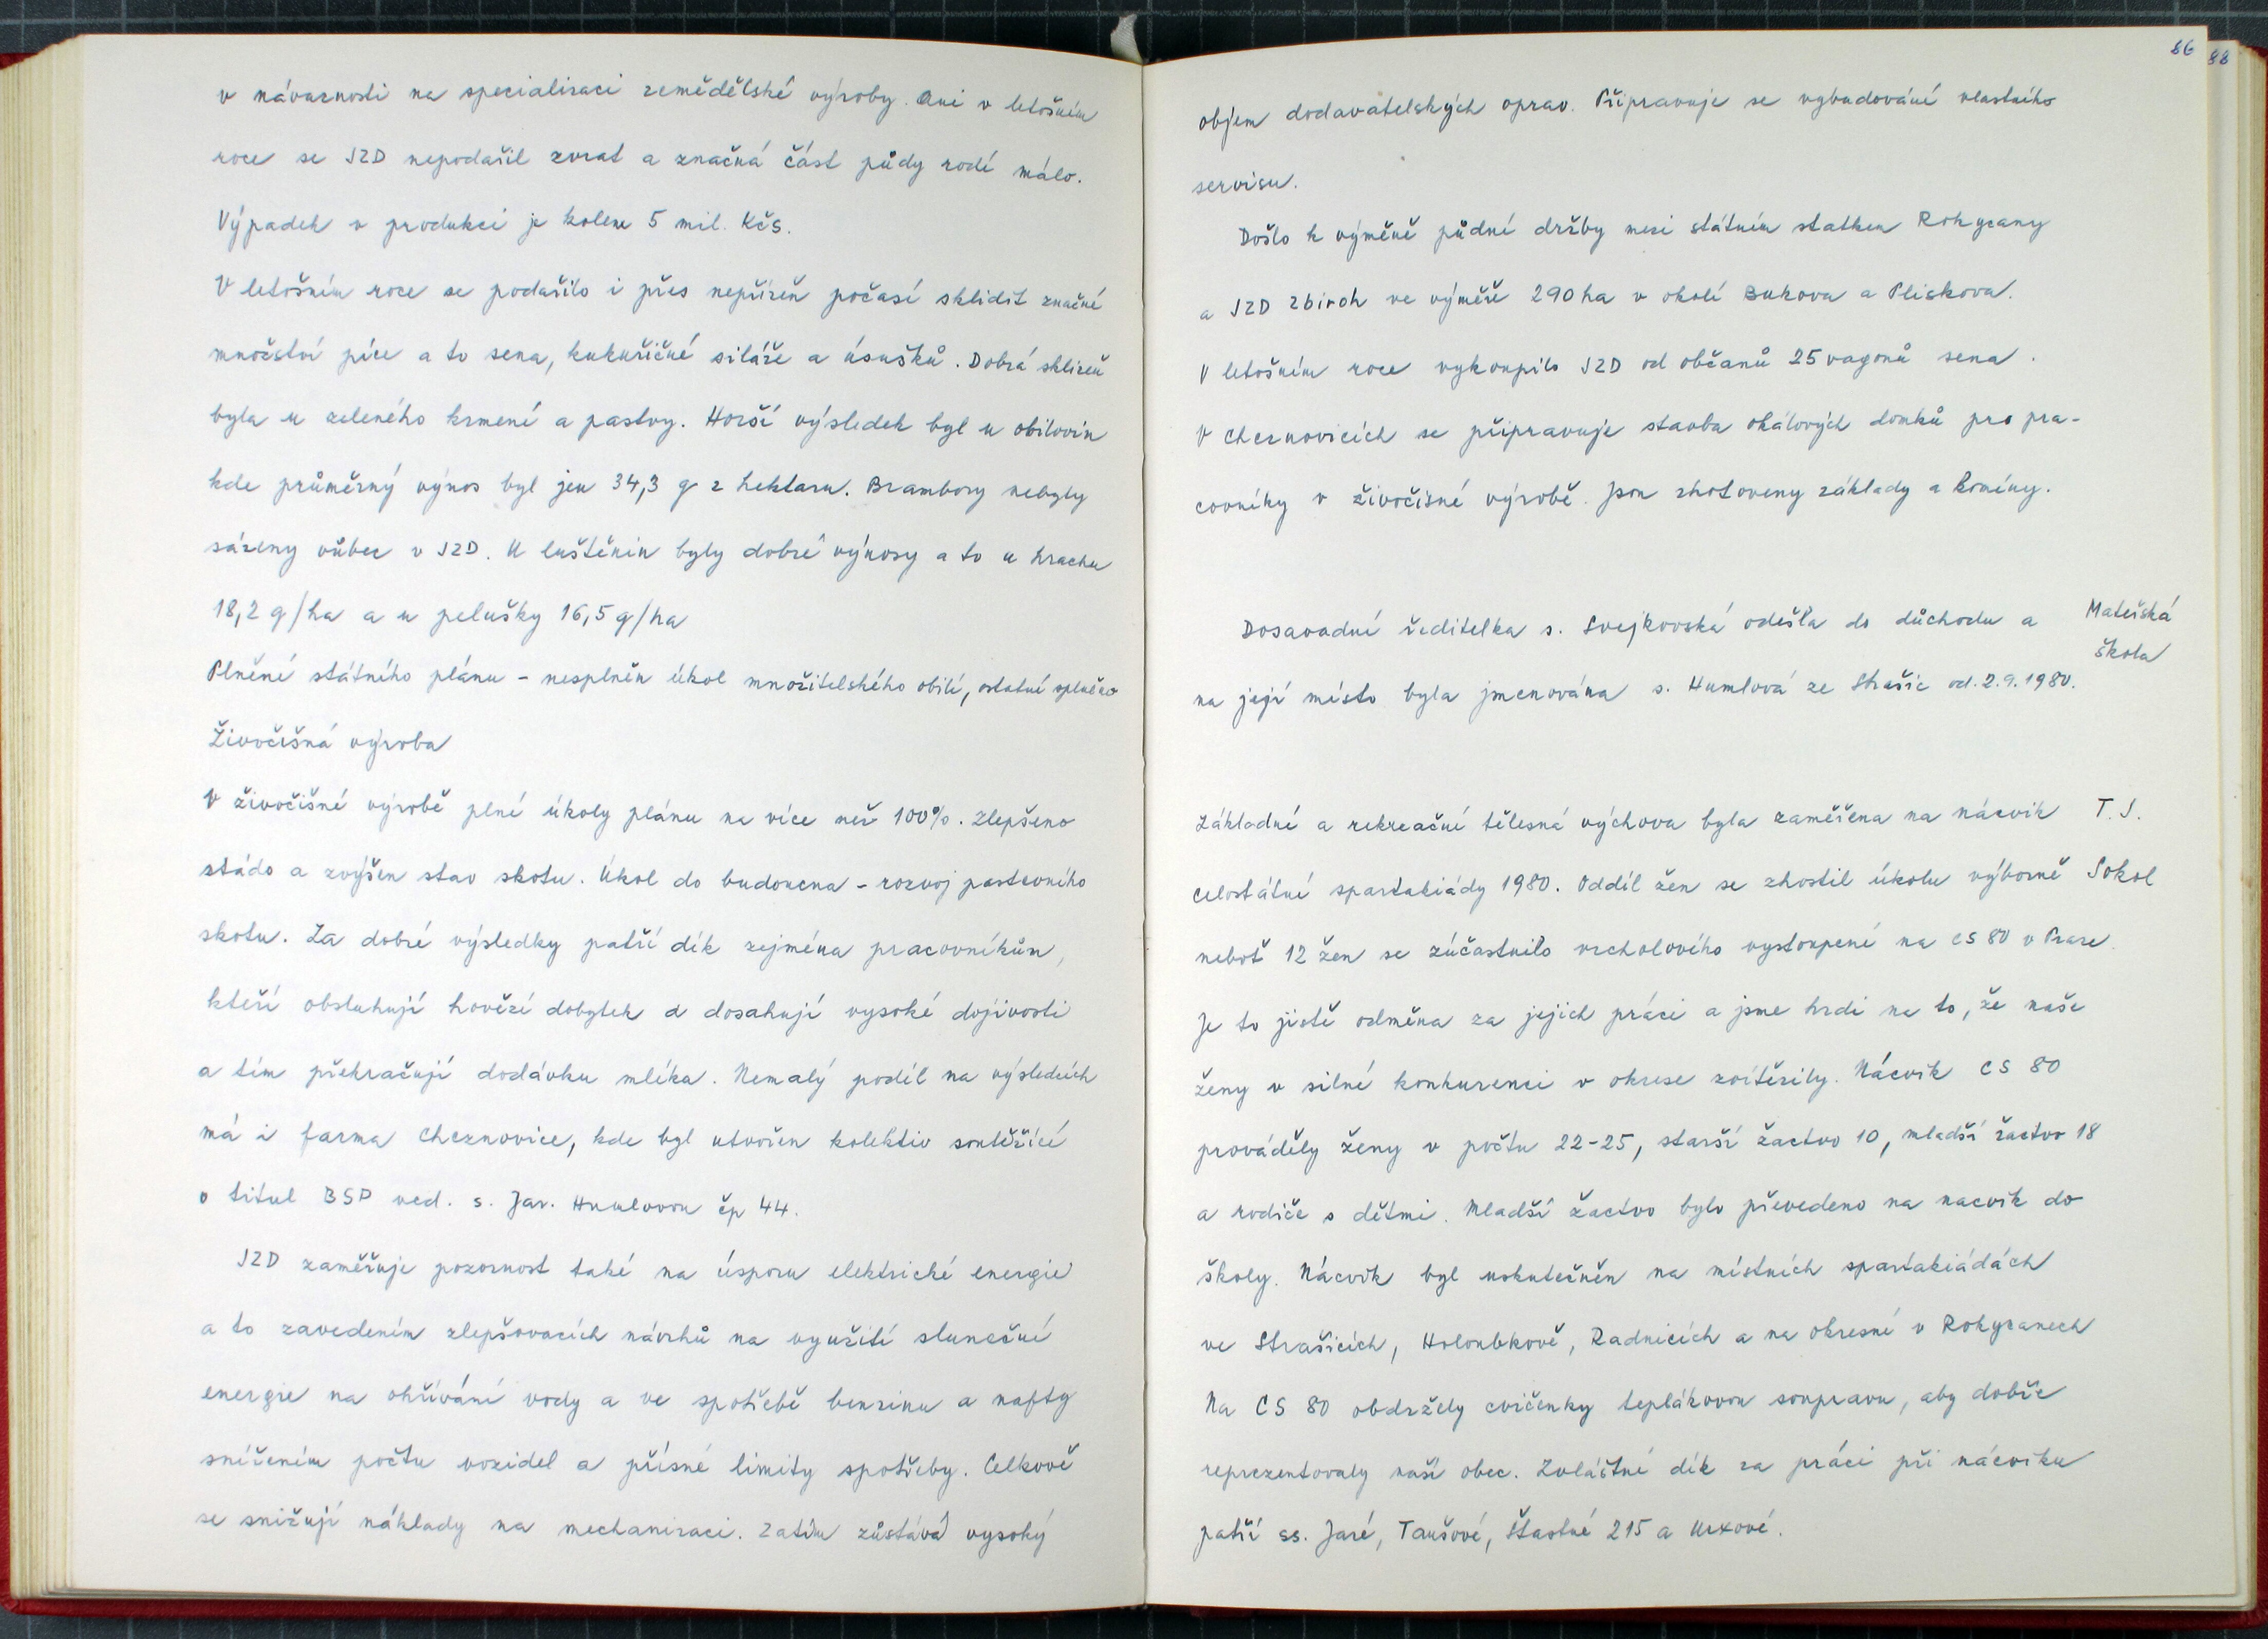 v návaznosti na specializaci zemědělské výroby. Ani v letošním
roce se JZD nepodařil zvrat a značná část půdy rodí málo.
Výpadek v produkci je kolem 5 mil. Kčs.
V letošním roce se podařilo i přes nepřízeň počasí sklidit značné
množství píce a to sena, kukuřičné siláže a úsušků. Dobrá sklizeň
byla u zeleného krmení a pastvy. Horší výsledek byl u obilovin
kde průměrný výnos byl jen 34,3 q z hektaru. Brambory nebyly
sázeny vůbec v JZD. U luštěnin byly dobré výnosy a to u hrachu
18,2 q/ha a u pelušky 16,5 q/ha
Plnění státního plánu - nesplněn úkol množitelského obilí, ostatní splněno
Živočišná výroba
V živočišné výrobě plní úkoly plánu na více než 100%. Zlepšeno
stádo a zvýšen stav skotu. Úkol do budoucna - rozvoj pastevního
skotu. Za dobré výsledky patří dík zejména pracovníkům,
kteří obsluhují hovězí dobytek a dosahují vysoké dojivosti
a tím překračují dodávku mléka. Nemalý podíl na výsledcích
má i farma Cheznovice, kde byl utvořen kolektiv soutěžící
o titul BSP ved. s. Jar. Humlovou čp 44.
JZD zaměřuje pozornost také na úsporu elektrické energie
a to zavedením zlepšovacích návrhů na využití sluneční
energie na ohřívání vody a ve spotřebě benzinu a nafty
snížením počtu vozidel a přísné limity spotřeby. Celkově
se snižují náklady na mechanizaci. Zatím zůstává vysoký
86
88
objem dodavatelských oprav. Připravuje se vybudování vlastního
servisu.
Došlo k výměně půdní držby mezi státním statkem Rokycany
a JZD Zbiroh ve výměře 290 ha v okolí Bukova a Plískova.
V letošním roce vykoupilo JZD od občanů 25 vagonů sena.
V Cheznovicích se připravuje stavba okálových domků pro pra-
covníky v živočišné výrobě. Jsou zhotoveny základy a komíny.
Dosavadní ředitelka s. Svejkovská odešla do důchodu a
na její místo byla jmenována s. Humlová ze Strašic od. 2.9.1980.
Mateřská
škola
Základní a rekreační tělesná výchova byla zaměřena na nácvik
celostátní spartakiády 1980. Oddíl žen se zhostil úkolu výborně
neboť 12 žen se zúčastnilo vrcholového vystoupení na CS 80 v Praze.
Je to jistě odměna za jejich práci a jsme hrdi na to, že naše
ženy v silné konkurenci v okrese zvítězily. Nácvik CS 80
prováděly ženy v počtu 22-25, starší žactvo 10, mladší žactvo 18
a rodiče s dětmi. Mladší žactvo bylo převedeno na nacvik do
školy. Nácvik byl uskutečněn na místních spartakiádách
ve Strašicích, Holoubkově, Radnicích a na okresní v Rokycanech
Na CS 80 obdržely cvičenky teplákovou soupravu, aby dobře
reprezentovaly naší obec. Zvláštní dík za práci při nácviku
patří ss. Jaré, Taušové, Šťastné 215 a Urxové.
T. J.
Sokol